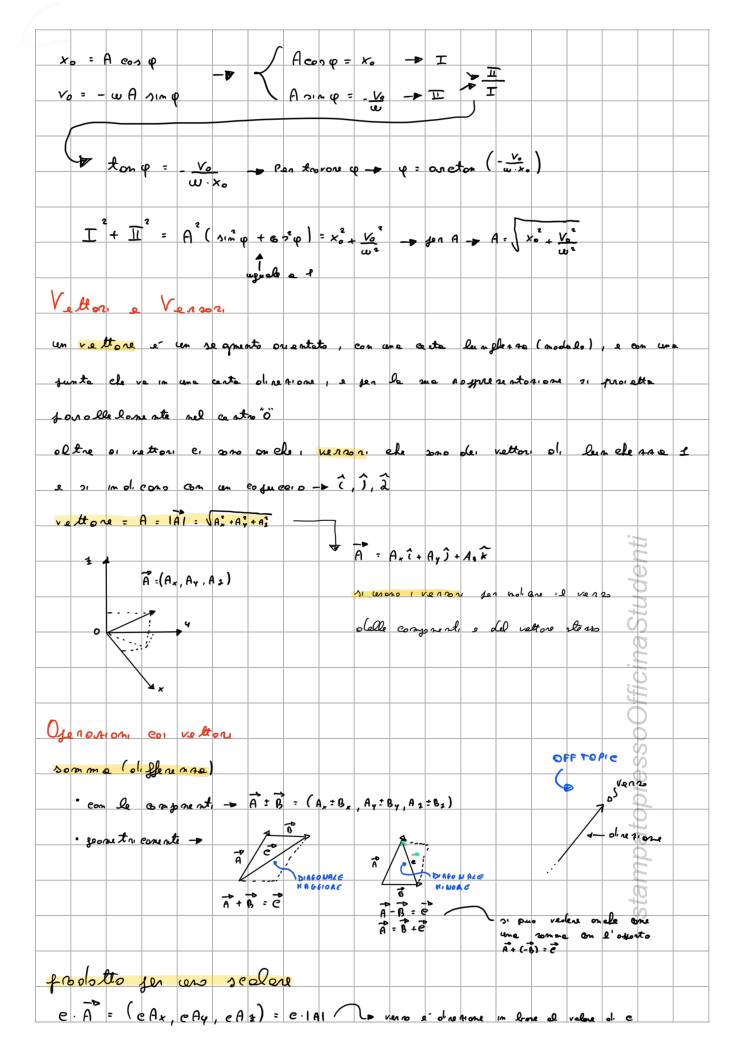 x₀ = A cos φ → { A cos φ = x₀ → I
v₀ = - ω A sin φ A sin φ = - v₀/ω → II II/I
tan φ = - v₀/(ω · x₀) → Per trovare φ → φ = arctan (- v₀/(ω · x₀))
I² + II² = A² (sin²φ + cos²φ) = x₀² + v₀²/ω² → per A → A = √(x₀² + v₀²/ω²)
uguale a 1
Vettori e Versori
un vettore é un segmento orientato, con una certa lunghezza (modulo), e con una
punta che va in una certa direzione, e per la sua rappresentazione si proietta
parallelamente nel centro "0"
oltre ai vettori ci sono anche i versori che sono dei vettori di lunchezza 1
e si indicano con un capuccio → î, ĵ, ẑ
vettore = A = |A⃗| = √(Aₓ² + Aᵧ² + A_z²)
A⃗ = Aₓ î + Aᵧ ĵ + A_z k̂
z
A⃗ = (Aₓ, Aᵧ, A_z)
si usano i versori per notare il verso
delle componenti e del vettore stesso
0
y
x
Operazioni coi vettori
somma (differenza)
OFF TOPIC
verso
• con le componenti → A⃗ ± B⃗ = (Aₓ ± Bₓ, Aᵧ ± Bᵧ, A_z ± B_z)
direzione
• geometricamente →
B⃗
A⃗
c⃗
DIAGONALE
MAGGIORE
A⃗ + B⃗ = c⃗
A⃗
c⃗
B⃗
DIAGONALE
MINORE
A⃗ - B⃗ = c⃗
A⃗ = B⃗ + c⃗
si può vedere anche come
una somma con l'opposto
A⃗ + (-B⃗) = c⃗
prodotto per uno scalare
c · A⃗ = (c Aₓ, c Aᵧ, c A_z) = c · |A| → verso e direzione in base al valore di c
stampatopressoOfficinaStudenti